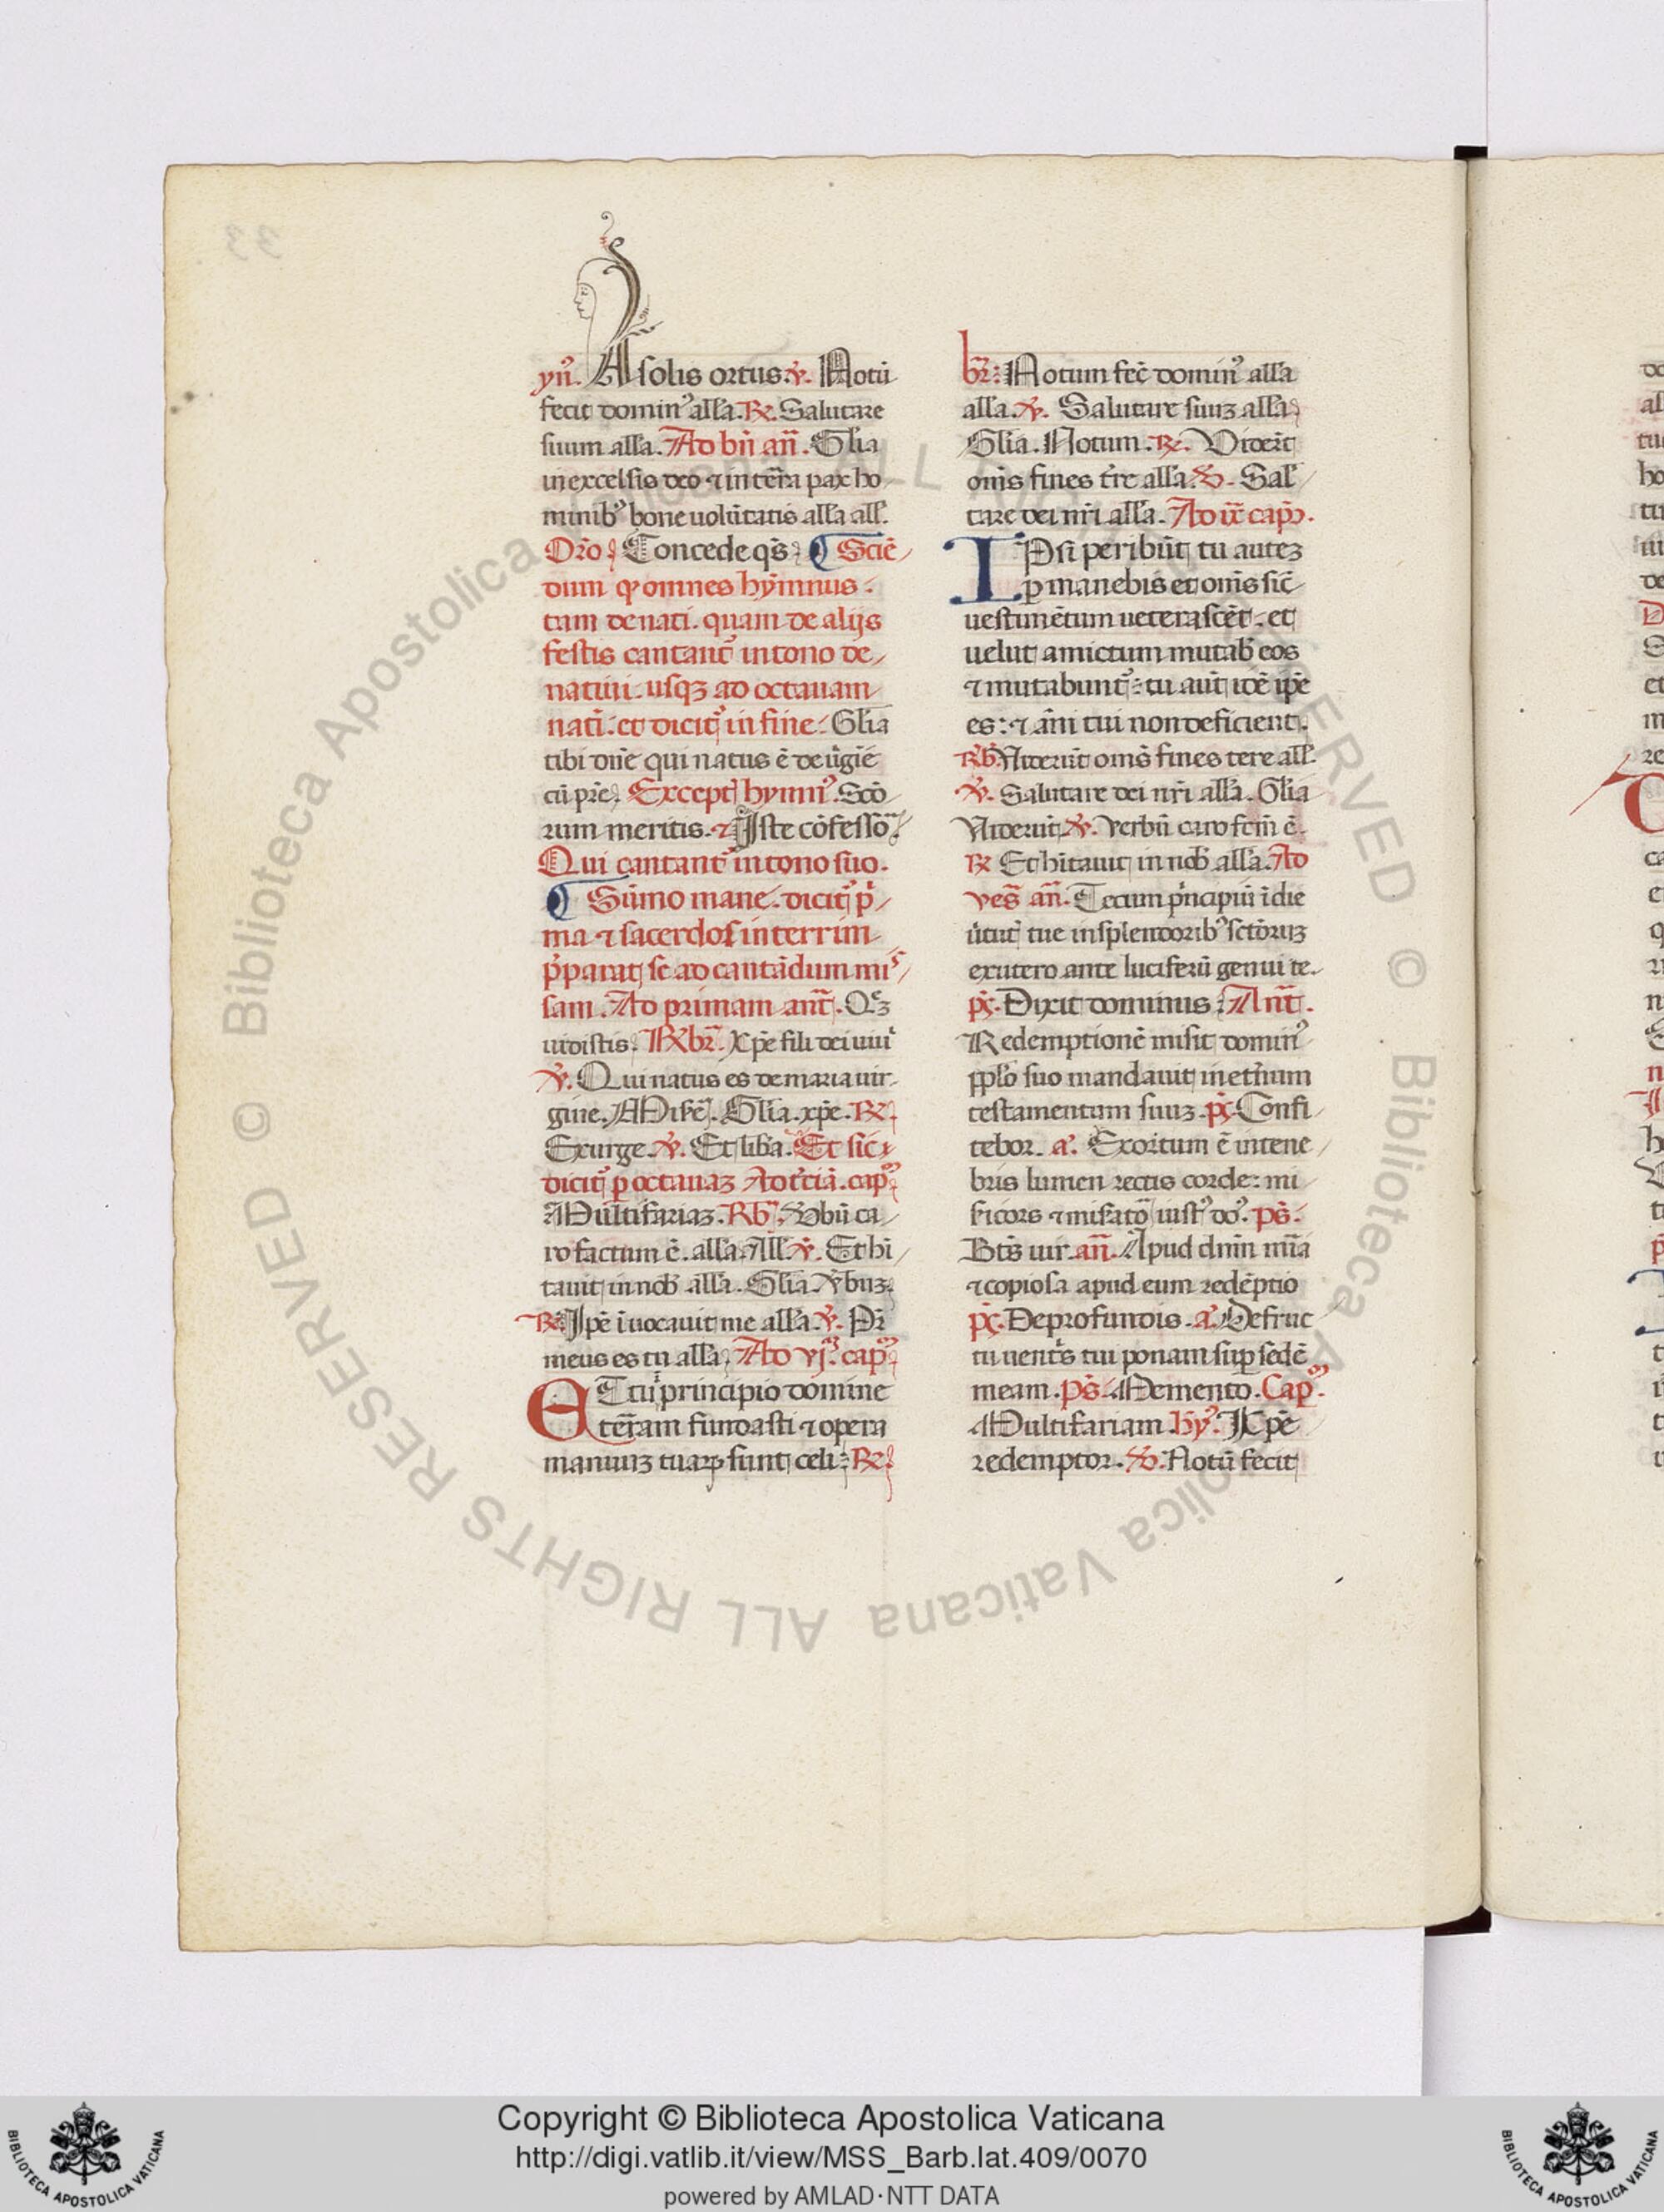 yn̄. A solis ortus. ℣. Notū
fecit domin⁹ alła. ℟. Salutare
suum alła. Ad bn̄ an̄. Gl̄ia
in excelsis deo ⁊ in ter̄a pax ho
minib⁹ bone uolūtatis alła all̄.
Or̄o Concede qs̄. Sciē
dum ꝙ omnes hymnus
tam de nati. quam de alijs
festis cantant᷑ in tono de
natiui. usqꝫ ad octauam
nati. et dicit᷑ in fine. Gl̄ia
tibi dn̄e qui natus ē de ūgīe
cū pr̄e. Except hymn⁹. Scō
rum meritis. ⁊ Iste cōfesso
Qui cantant᷑ in tono suo.
Sūmo mane. dicit᷑ p̄
ma ⁊ sacerdos in terrim
p̄parat se ad cantādum mis
sam. Ad primam ant̄. Qꝫ
uidistis. ℟br̄. Xp̄e fili dei uiui
℣. Qui natus es de maria uir
gine. Misē. Gl̄ia. xp̄e. ℟.
Exurge. ℣. Et liba. Et sic
dicit᷑ ꝑ octauaꝫ Ad t̄ciā. cap̄
Multifariaꝫ. Rb̄. Ūbū ca
ro factum ē. alła. All̄. ℣. Et hi
tauit in nob̄ alła. Gl̄ia. Ūbuꝫ
℟. Ip̄e īuocauit me alła. ℣. Pr̄
meus es tu alła. Ad vj. cap̄
ET tu principio domine
ter̄am fundasti ⁊ opera
manuuꝫ tuaꝝ sunt celi: ℟.
br̄: Notum fec̄ domin⁹ alła
alła. ℣. Salutare suuꝫ alła
Gl̄ia. Notum. ℟. Vider̄t
om̄s fines t̄re alła. ℣. Sal
tare dei nr̄i alła. Ad ix̄ cap̄.
IPsi peribūt tu auteꝫ
ꝑmanebis et om̄s sic̄
uestimētum ueterascēt. et
uelut amictum mutab̄ eos
⁊ mutabunt᷑: tu aūt idē ip̄e
es: ⁊ an̄i tui non deficient.
Rb̄. Viderūt om̄s fines tere all̄.
℣. Salutare dei nr̄i alła. Gl̄ia
Viderūt. ℣. Verbū caro fcm̄ ē.
℟ Et hītauit in nob̄ alła. Ad
ves̄ an̄. Tecum p̄ncipiū ī die
ūtut tue in splendorib⁹ sctōruꝫ
ex utero ante luciferū genui te.
ps̄. Dixit dominus. Ant̄.
Redemptionē misit domin⁹
pp̄lo suo mandauit in et̄num
testamentum suuꝫ. ps̄. Confi
tebor. a⁹. Exortum ē in tene
bris lumen rectis corde: mi
sicors ⁊ misatō iust⁹ do⁹. ps̄.
Bt̄s uir. an̄. Apud dn̄m mīa
⁊ copiosa apud eum redēptio
ps̄. De profundis. a⁹. De fruc
tu uent̄s tui ponam suꝑ sedē
meam. ps̄. Memento. Cap̄.
Multifariam. hy⁹. Xp̄e
redemptor. ℣. Notū fecit
Copyright © Biblioteca Apostolica Vaticana
http://digi.vatlib.it/view/MSS_Barb.lat.409/0070
powered by AMLAD·NTT DATA